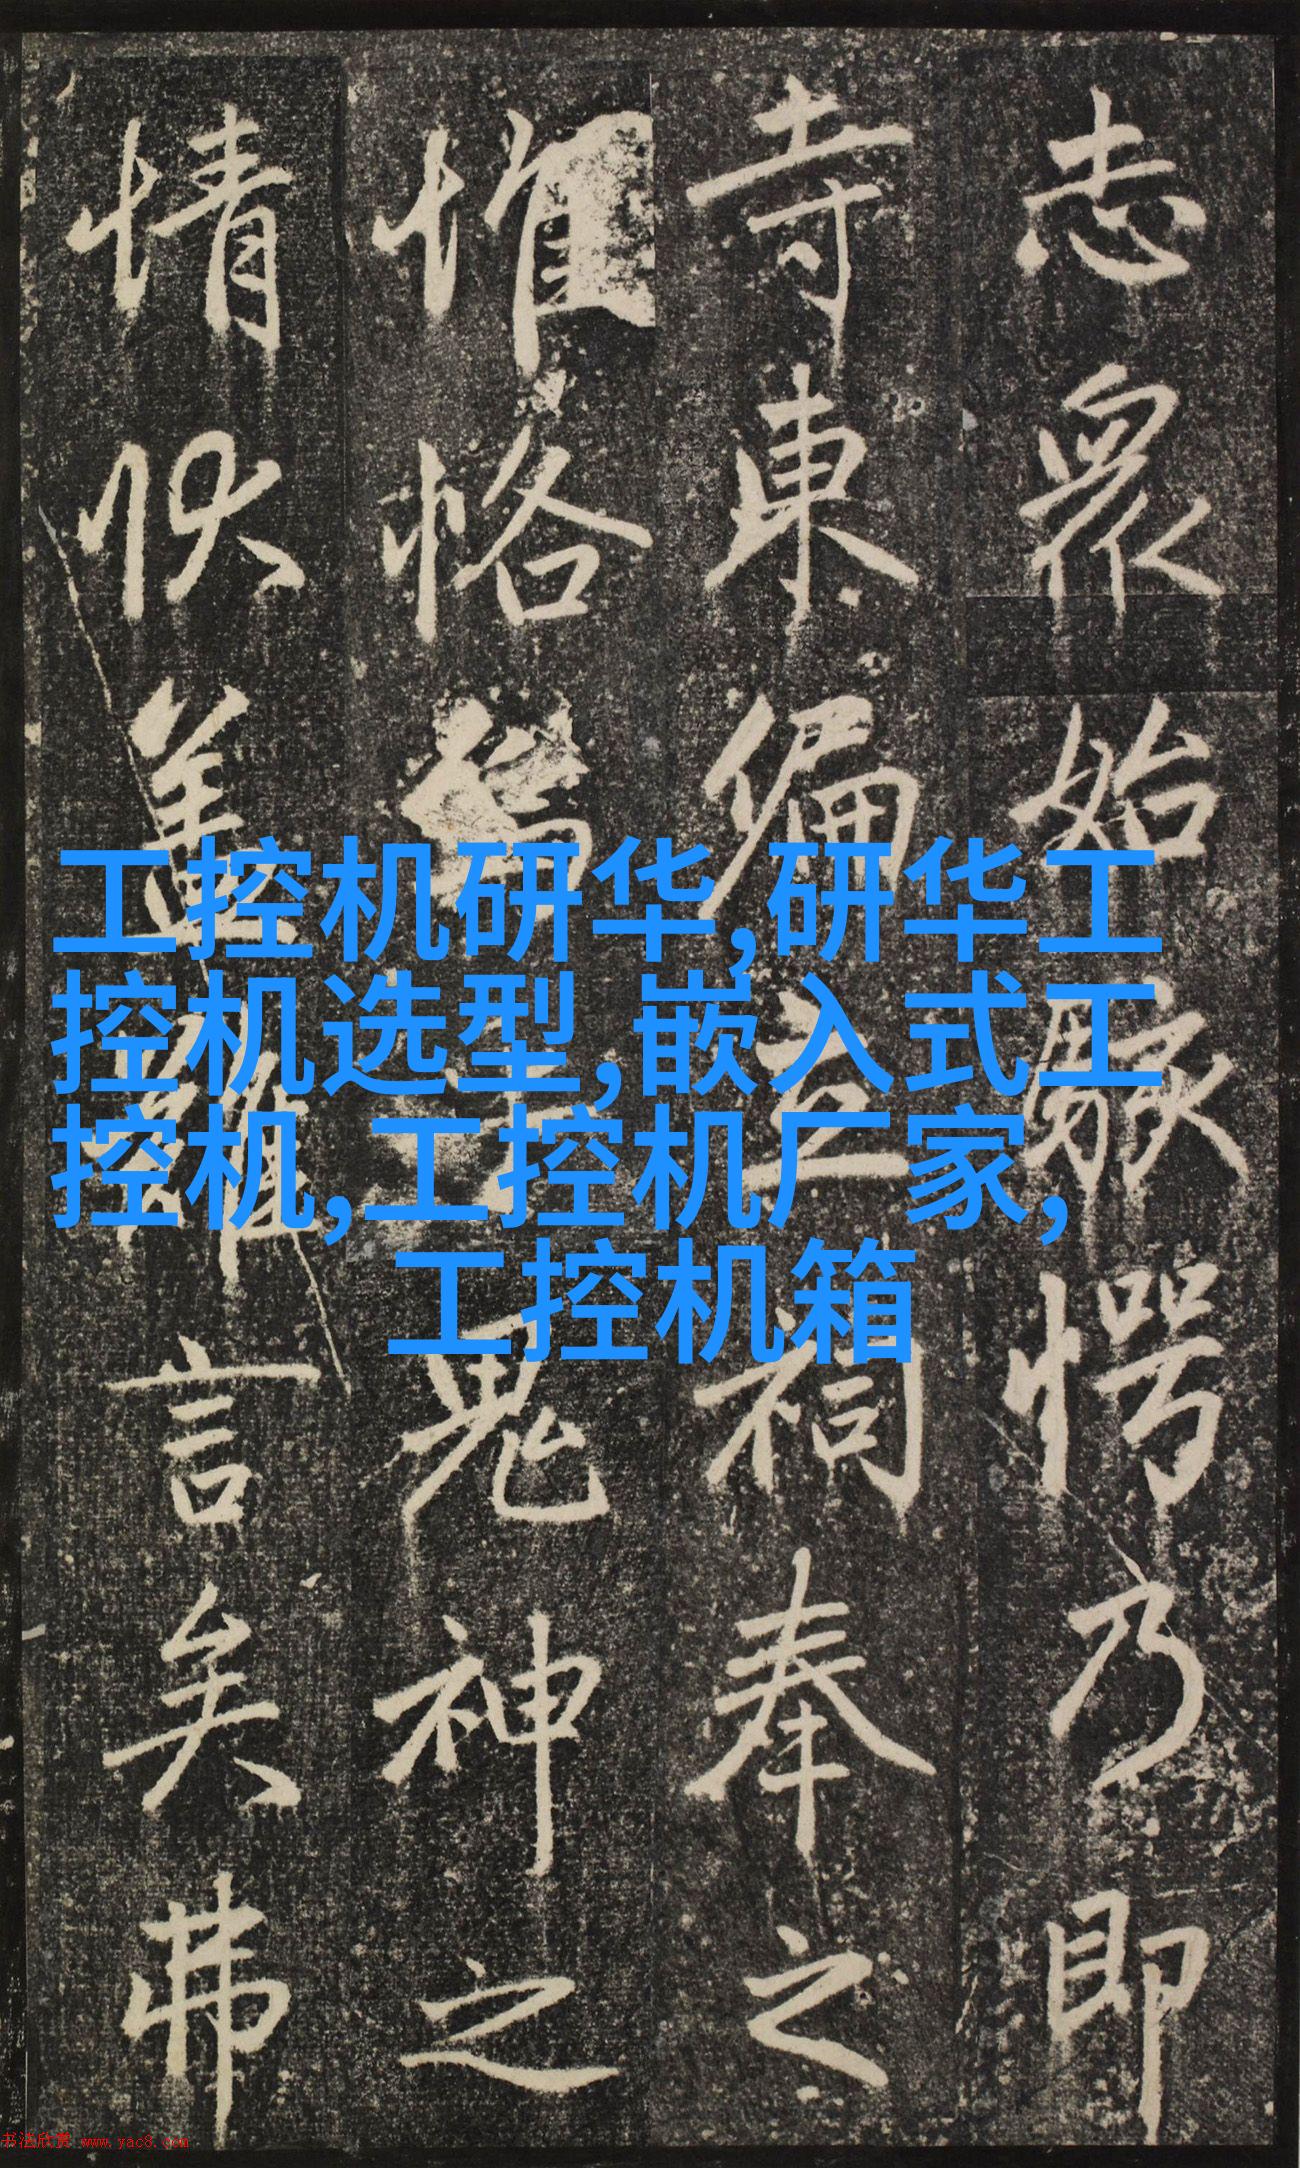 志眾始駭愕乃即
寺東偏立祠奉之
惟恪鬼神之
情狀蓋難言矣弗
工控机研华,研华工
控机选型,嵌入式工
控机,工控机厂家,
工控机箱
书法欣赏 www.yac8.com